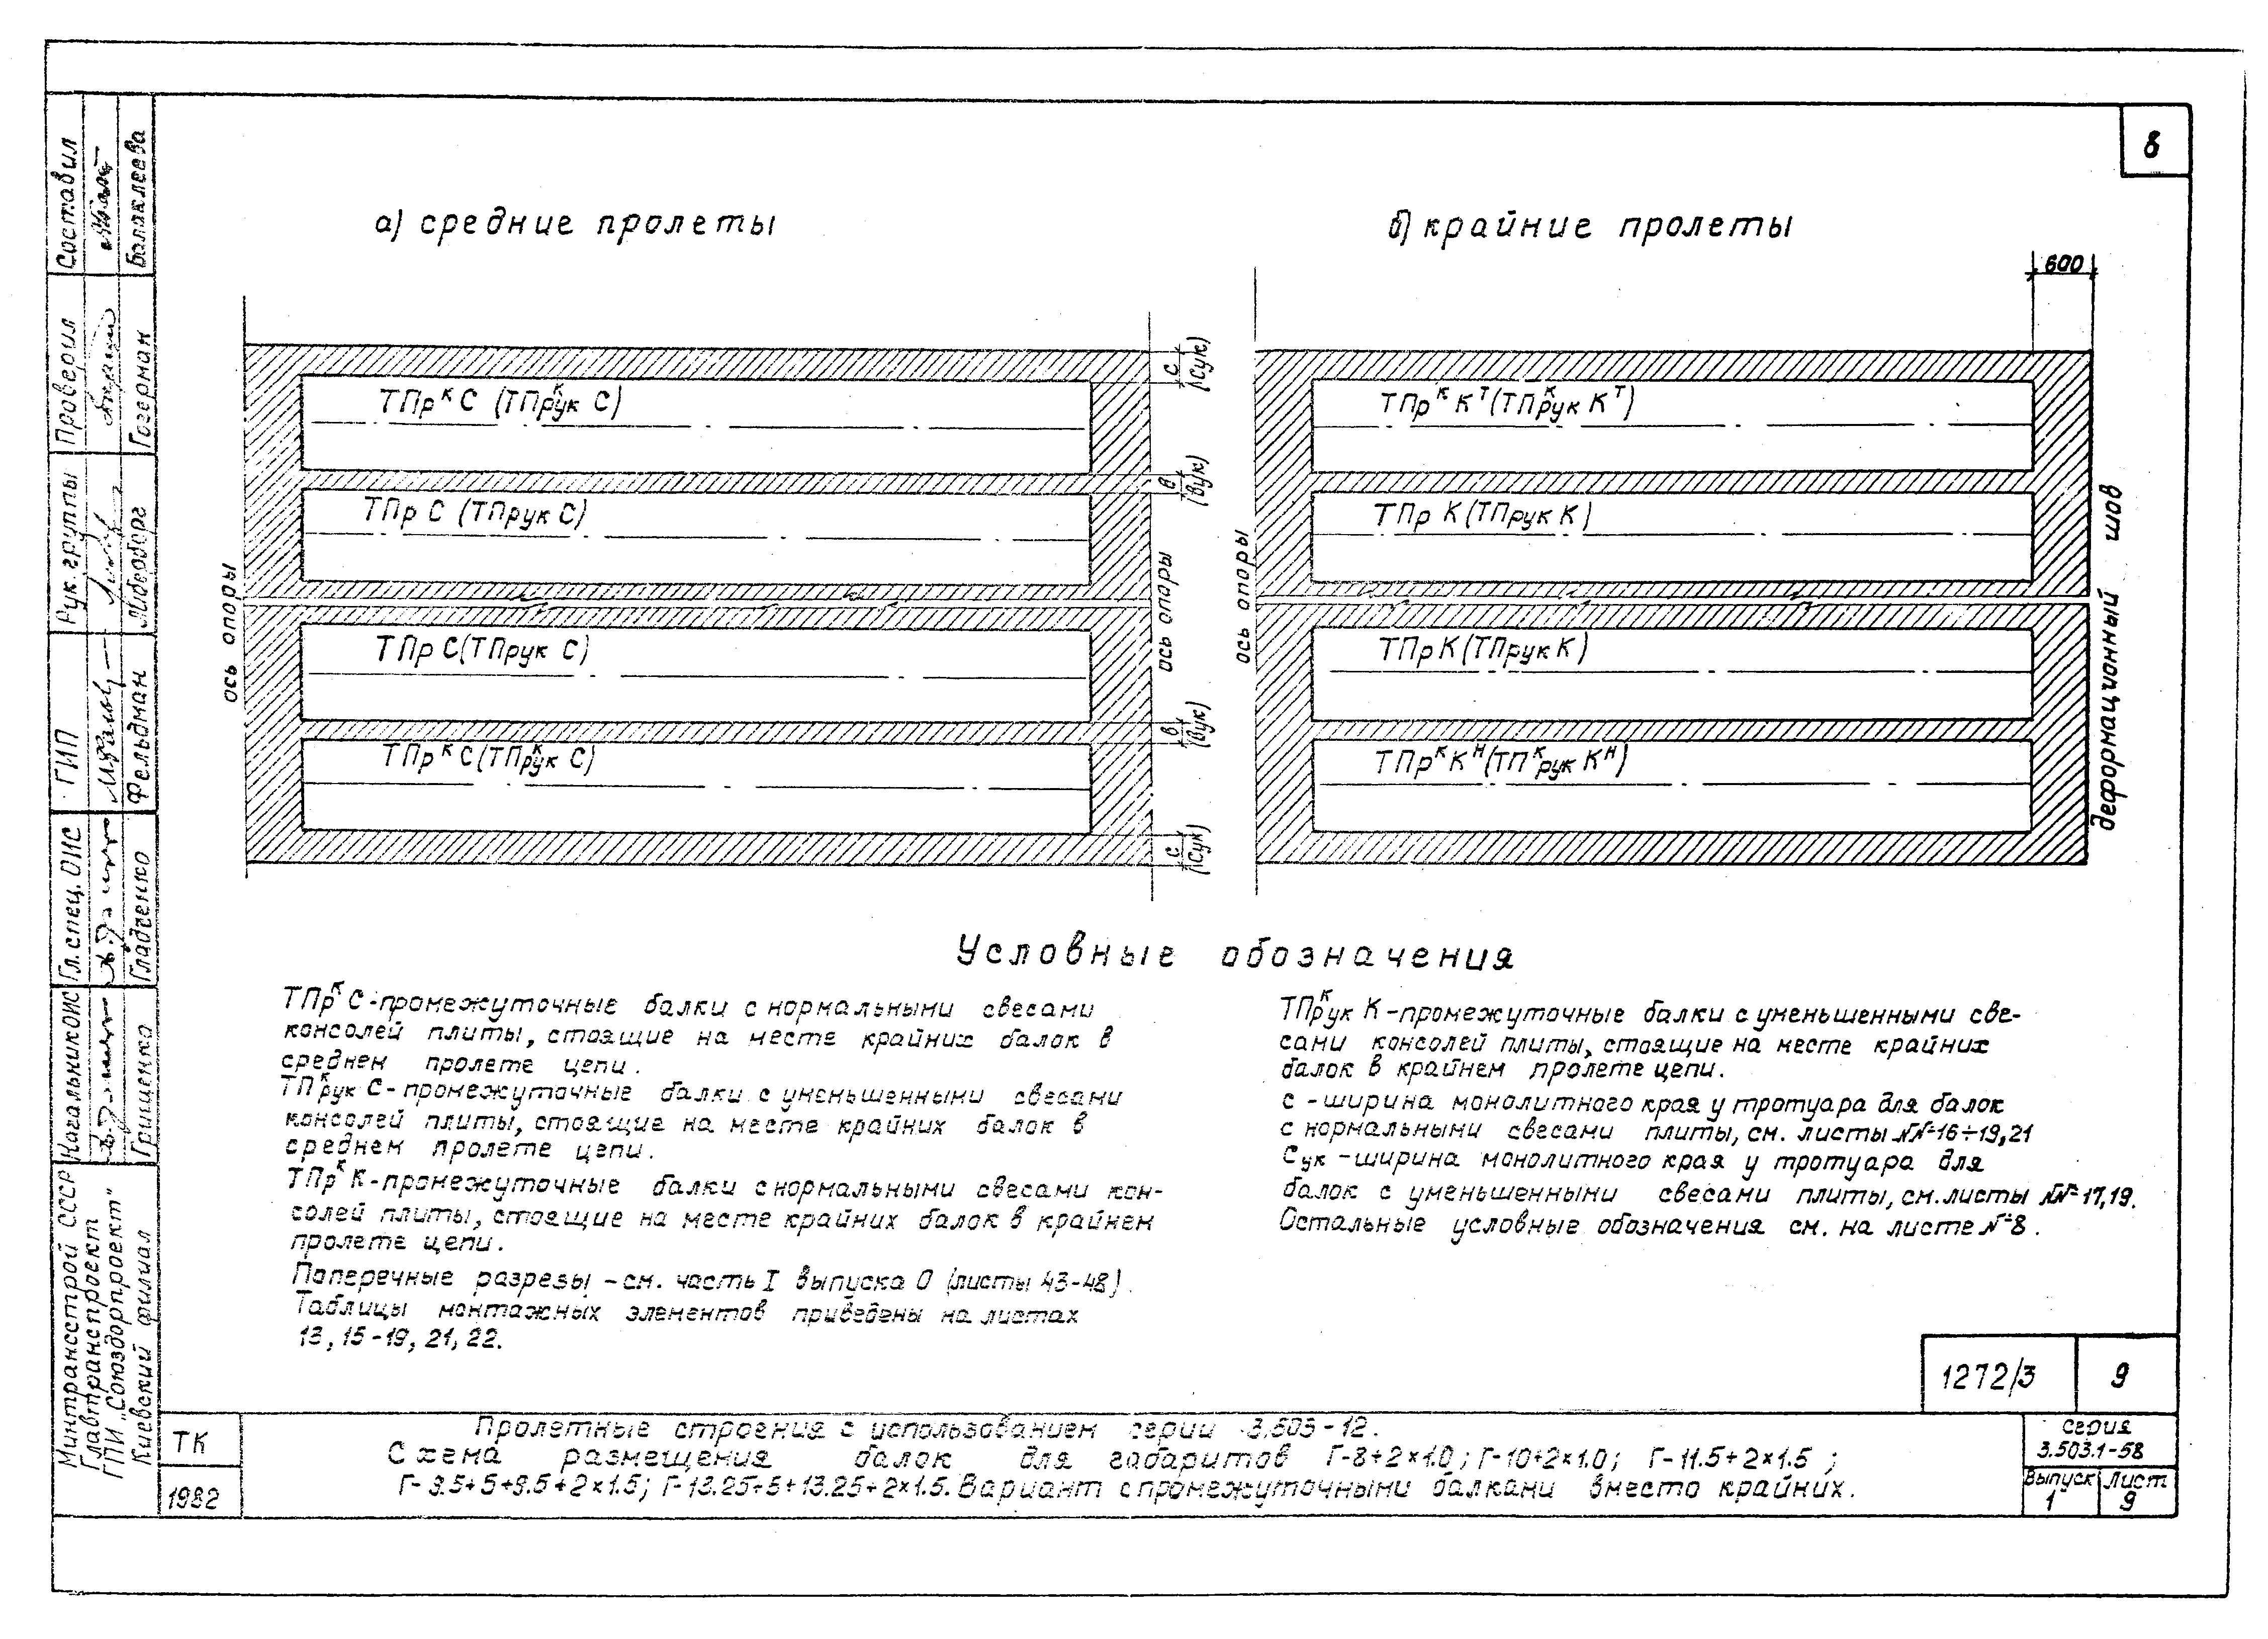 8
а) средние пролеты
б) крайние пролеты
600
ТПрᴷ С (ТПᴷрук С)
ТПр С (ТПрук С)
ТПр С (ТПрук С)
ТПрᴷ С (ТПᴷрук С)
ось опоры
ось опоры
с (Сук)
в (вук)
в (вук)
с (Сук)
ТПрᴷ Кᵀ (ТПᴷрук Кᵀ)
ТПр К (ТПрук К)
ТПр К (ТПрук К)
ТПрᴷ Кᴴ (ТПᴷрук Кᴴ)
ось опоры
деформационный шов
Условные обозначения
ТПрᴷ С - промежуточные балки с нормальными свесами
консолей плиты, стоящие на месте крайних балок в
среднем пролете цепи.
ТПᴷрук С - промежуточные балки с уменьшенными свесами
консолей плиты, стоящие на месте крайних балок в
среднем пролете цепи.
ТПрᴷ К - промежуточные балки с нормальными свесами кон-
солей плиты, стоящие на месте крайних балок в крайнем
пролете цепи.
Поперечные разрезы - см. часть I выпуска 0 (листы 43-48).
Таблицы монтажных элементов приведены на листах
13, 15-19, 21, 22.
ТПᴷрук К - промежуточные балки с уменьшенными све-
сами консолей плиты, стоящие на месте крайних
балок в крайнем пролете цепи.
с - ширина монолитного края у тротуара для балок
с нормальными свесами плиты, см. листы №№ 16÷19, 21
Сук - ширина монолитного края у тротуара для
балок с уменьшенными свесами плиты, см. листы №№ 17, 19.
Остальные условные обозначения см. на листе № 8.
1272/3
9
ТК
1982
Пролетные строения с использованием серии 3.503-12.
Схема размещения балок для габаритов Г-8+2×1.0; Г-10+2×1.0; Г-11.5+2×1.5;
Г-9.5+5+9.5+2×1.5; Г-13.25+5+13.25+2×1.5. Вариант с промежуточными балками вместо крайних.
серия
3.503.1-58
Выпуск
1
Лист
9
Составил
Балаклеева
Проверил
Гозерман
Рук. группы
Либерберг
ГИП
Фельдман
Гл. спец. ОИС
Гладченко
Начальник ОИС
Гриценко
Минтрансстрой СССР
Главтранспроект
ГПИ „Союздорпроект"
Киевский филиал